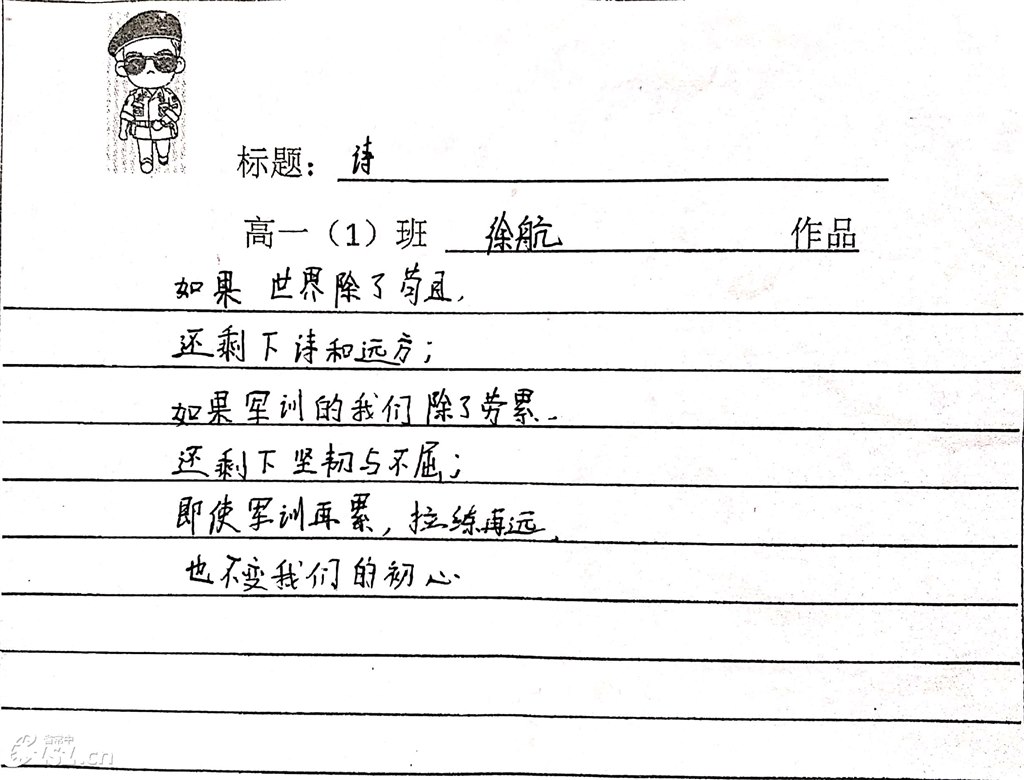 标题：诗
高一（1）班 徐航 作品
如果 世界除了苟且，
还剩下诗和远方；
如果军训的我们除了劳累，
还剩下坚韧与不屈；
即使军训再累，拉练再远，
也不变我们的初心.